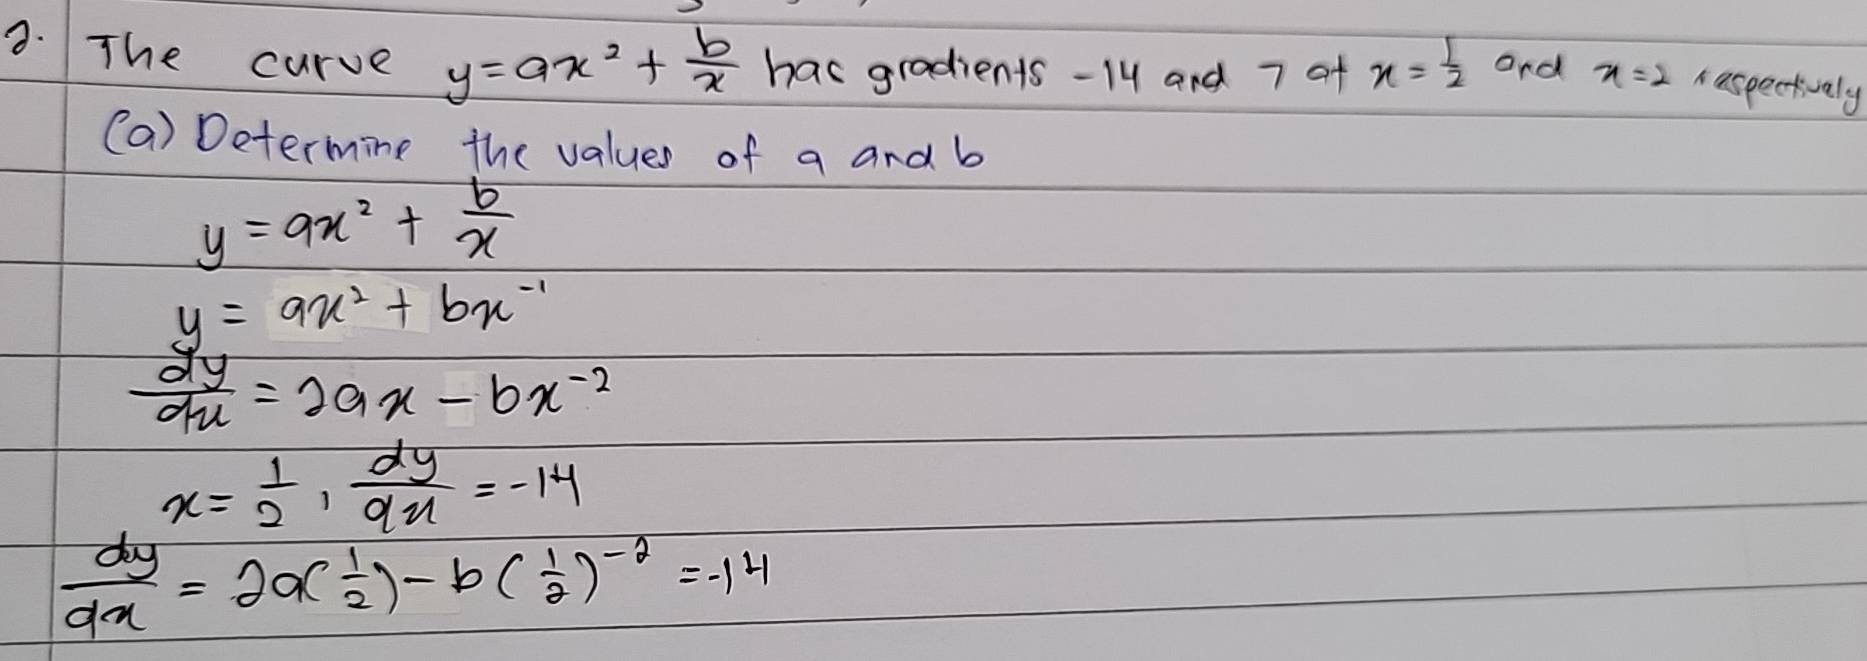 2. The curve y = ax² + b/x has gradients -14 and 7 at x = 1/2 and x = 2 respectively
(a) Determine the values of a and b
y = ax² + b/x
y = ax² + bx⁻¹
dy/dx = 2ax - bx⁻²
x = 1/2, dy/dx = -14
dy/dx = 2a(1/2) - b(1/2)⁻² = -14